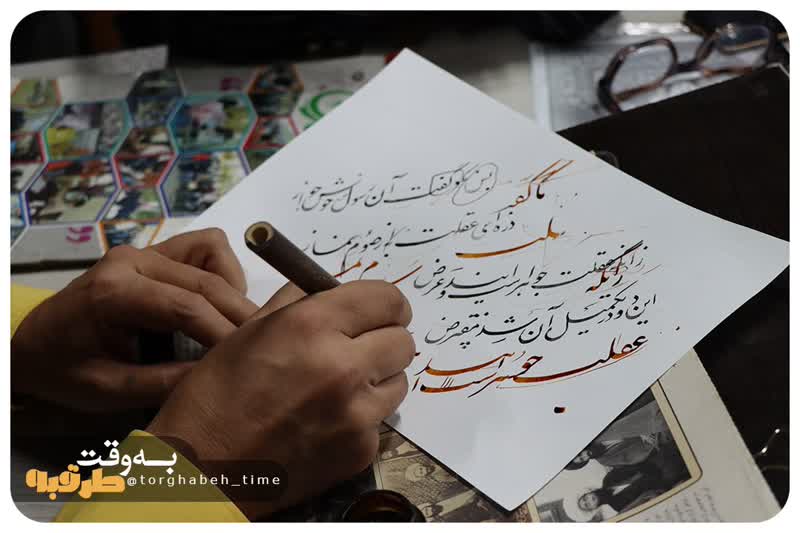 این نکو گفت آن رسول خوش جواز
ذره‌ای عقلت به از صوم و نماز
زانکه عقلت جوهر است این دو عرض
زانکه
این دو در تکمیل آن شد مفترض
عقلت جوهر است
به‌وقت
طرقبه
@torghabeh_time